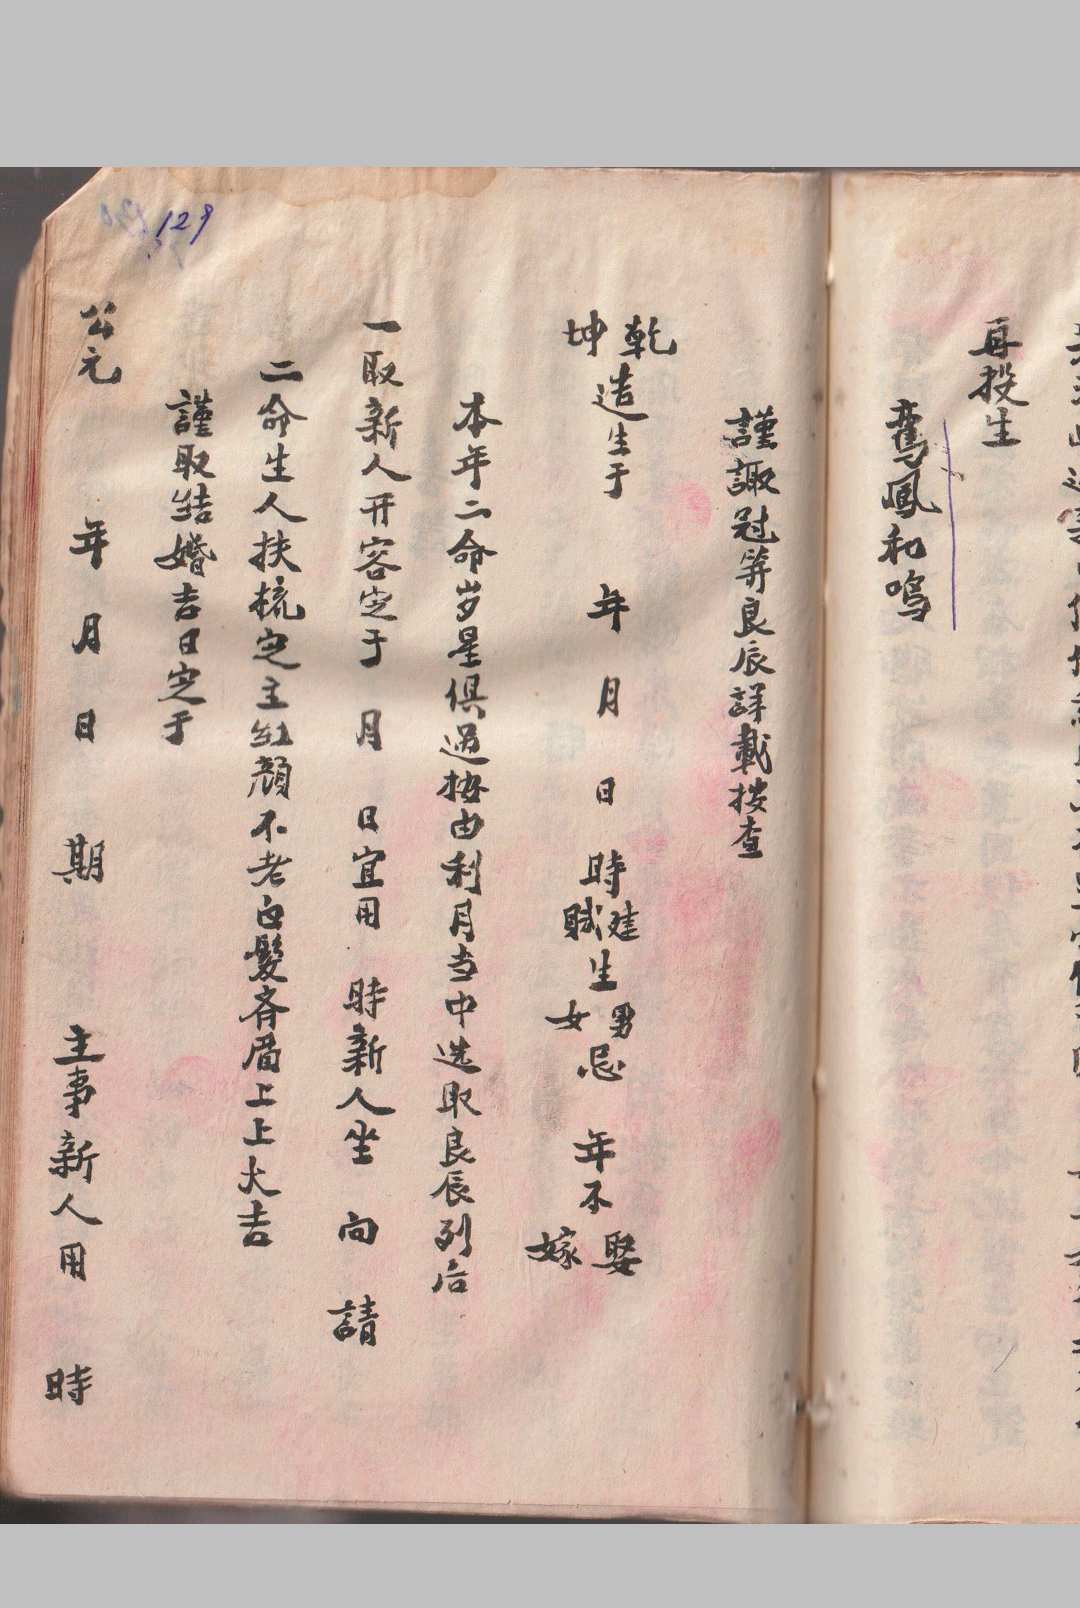 再投生
鸞鳳和鳴
謹諏冠笄良辰詳載按查
乾坤造生于 年 月 日 時建賦生男女忌 年不娶嫁
本年二命岁星俱過按由利月当中选取良辰列后
一取新人开容定于 月 日宜用 時新人坐 向 請
二命生人扶梳定主红颜不老白髮斉眉上上大吉
謹取结婚吉日定于
公元 年 月 日 期 主事新人用 時
129